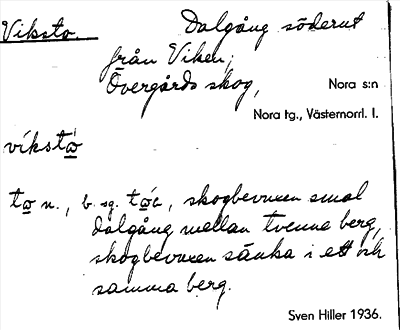 Viksto. Dalgång söderut
från Viken,
Övergårds skog, Nora s:n
Nora tg., Västernorrl. l.
víkstò̲
to̲ n., b. sg. , skogbevuxen smal
dalgång mellan tvenne berg,
skogbevuxen sänka i ett och
samma berg.
Sven Hiller 1936.